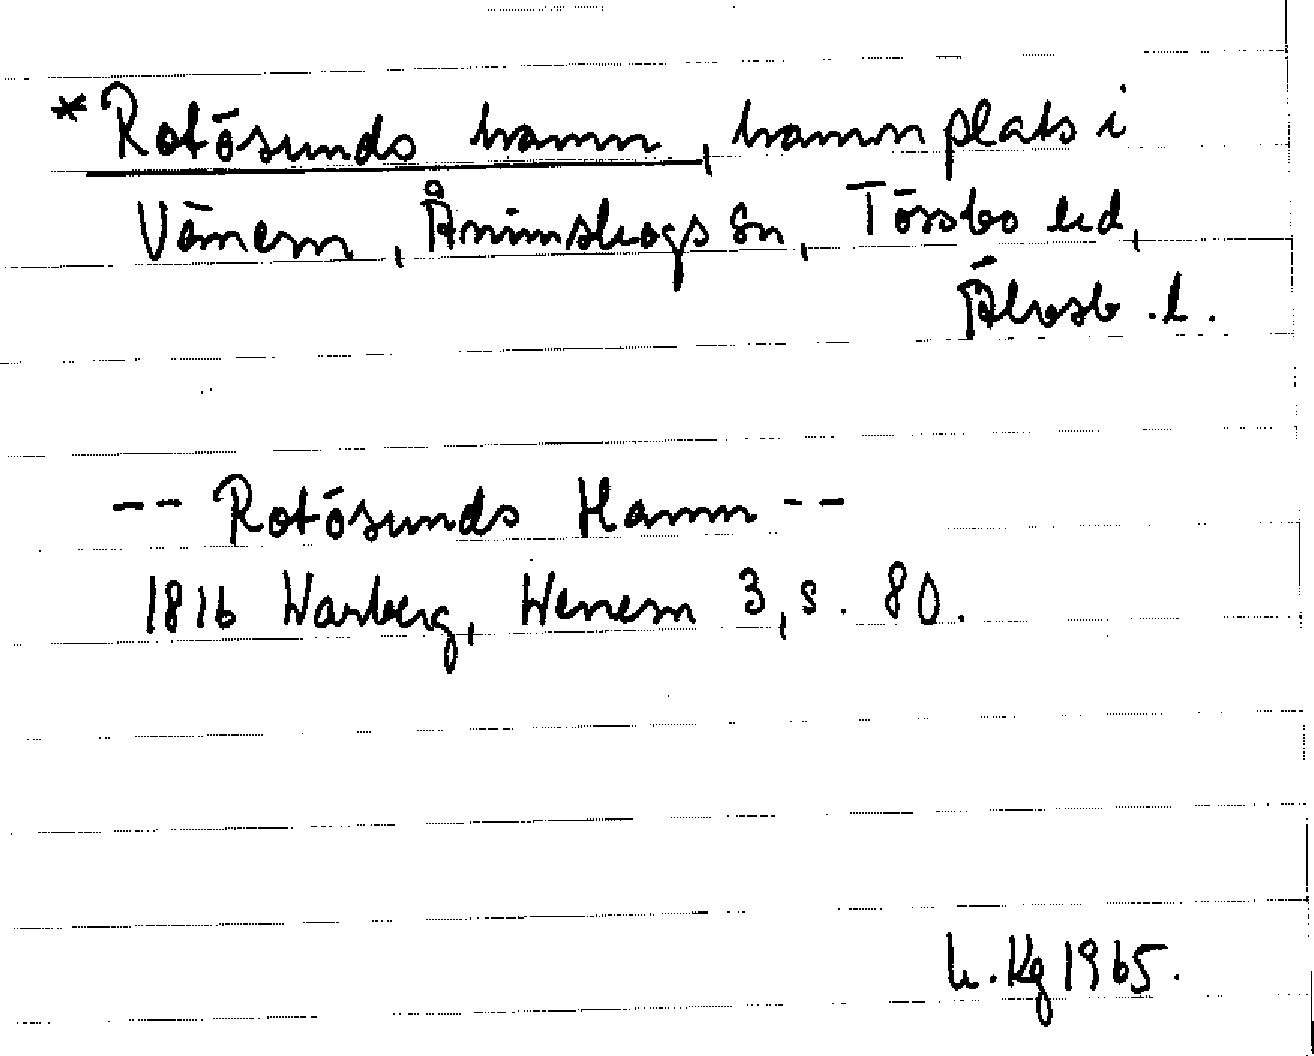 *Rotösunds hamn, hamnplats i
Vänern, Ånimskogs sn, Tössbo hd,
Älvsb. l.
-- Rotösunds Hamn --
1816 Warberg, Wenern 3, s. 80.
h. Kg 1965.